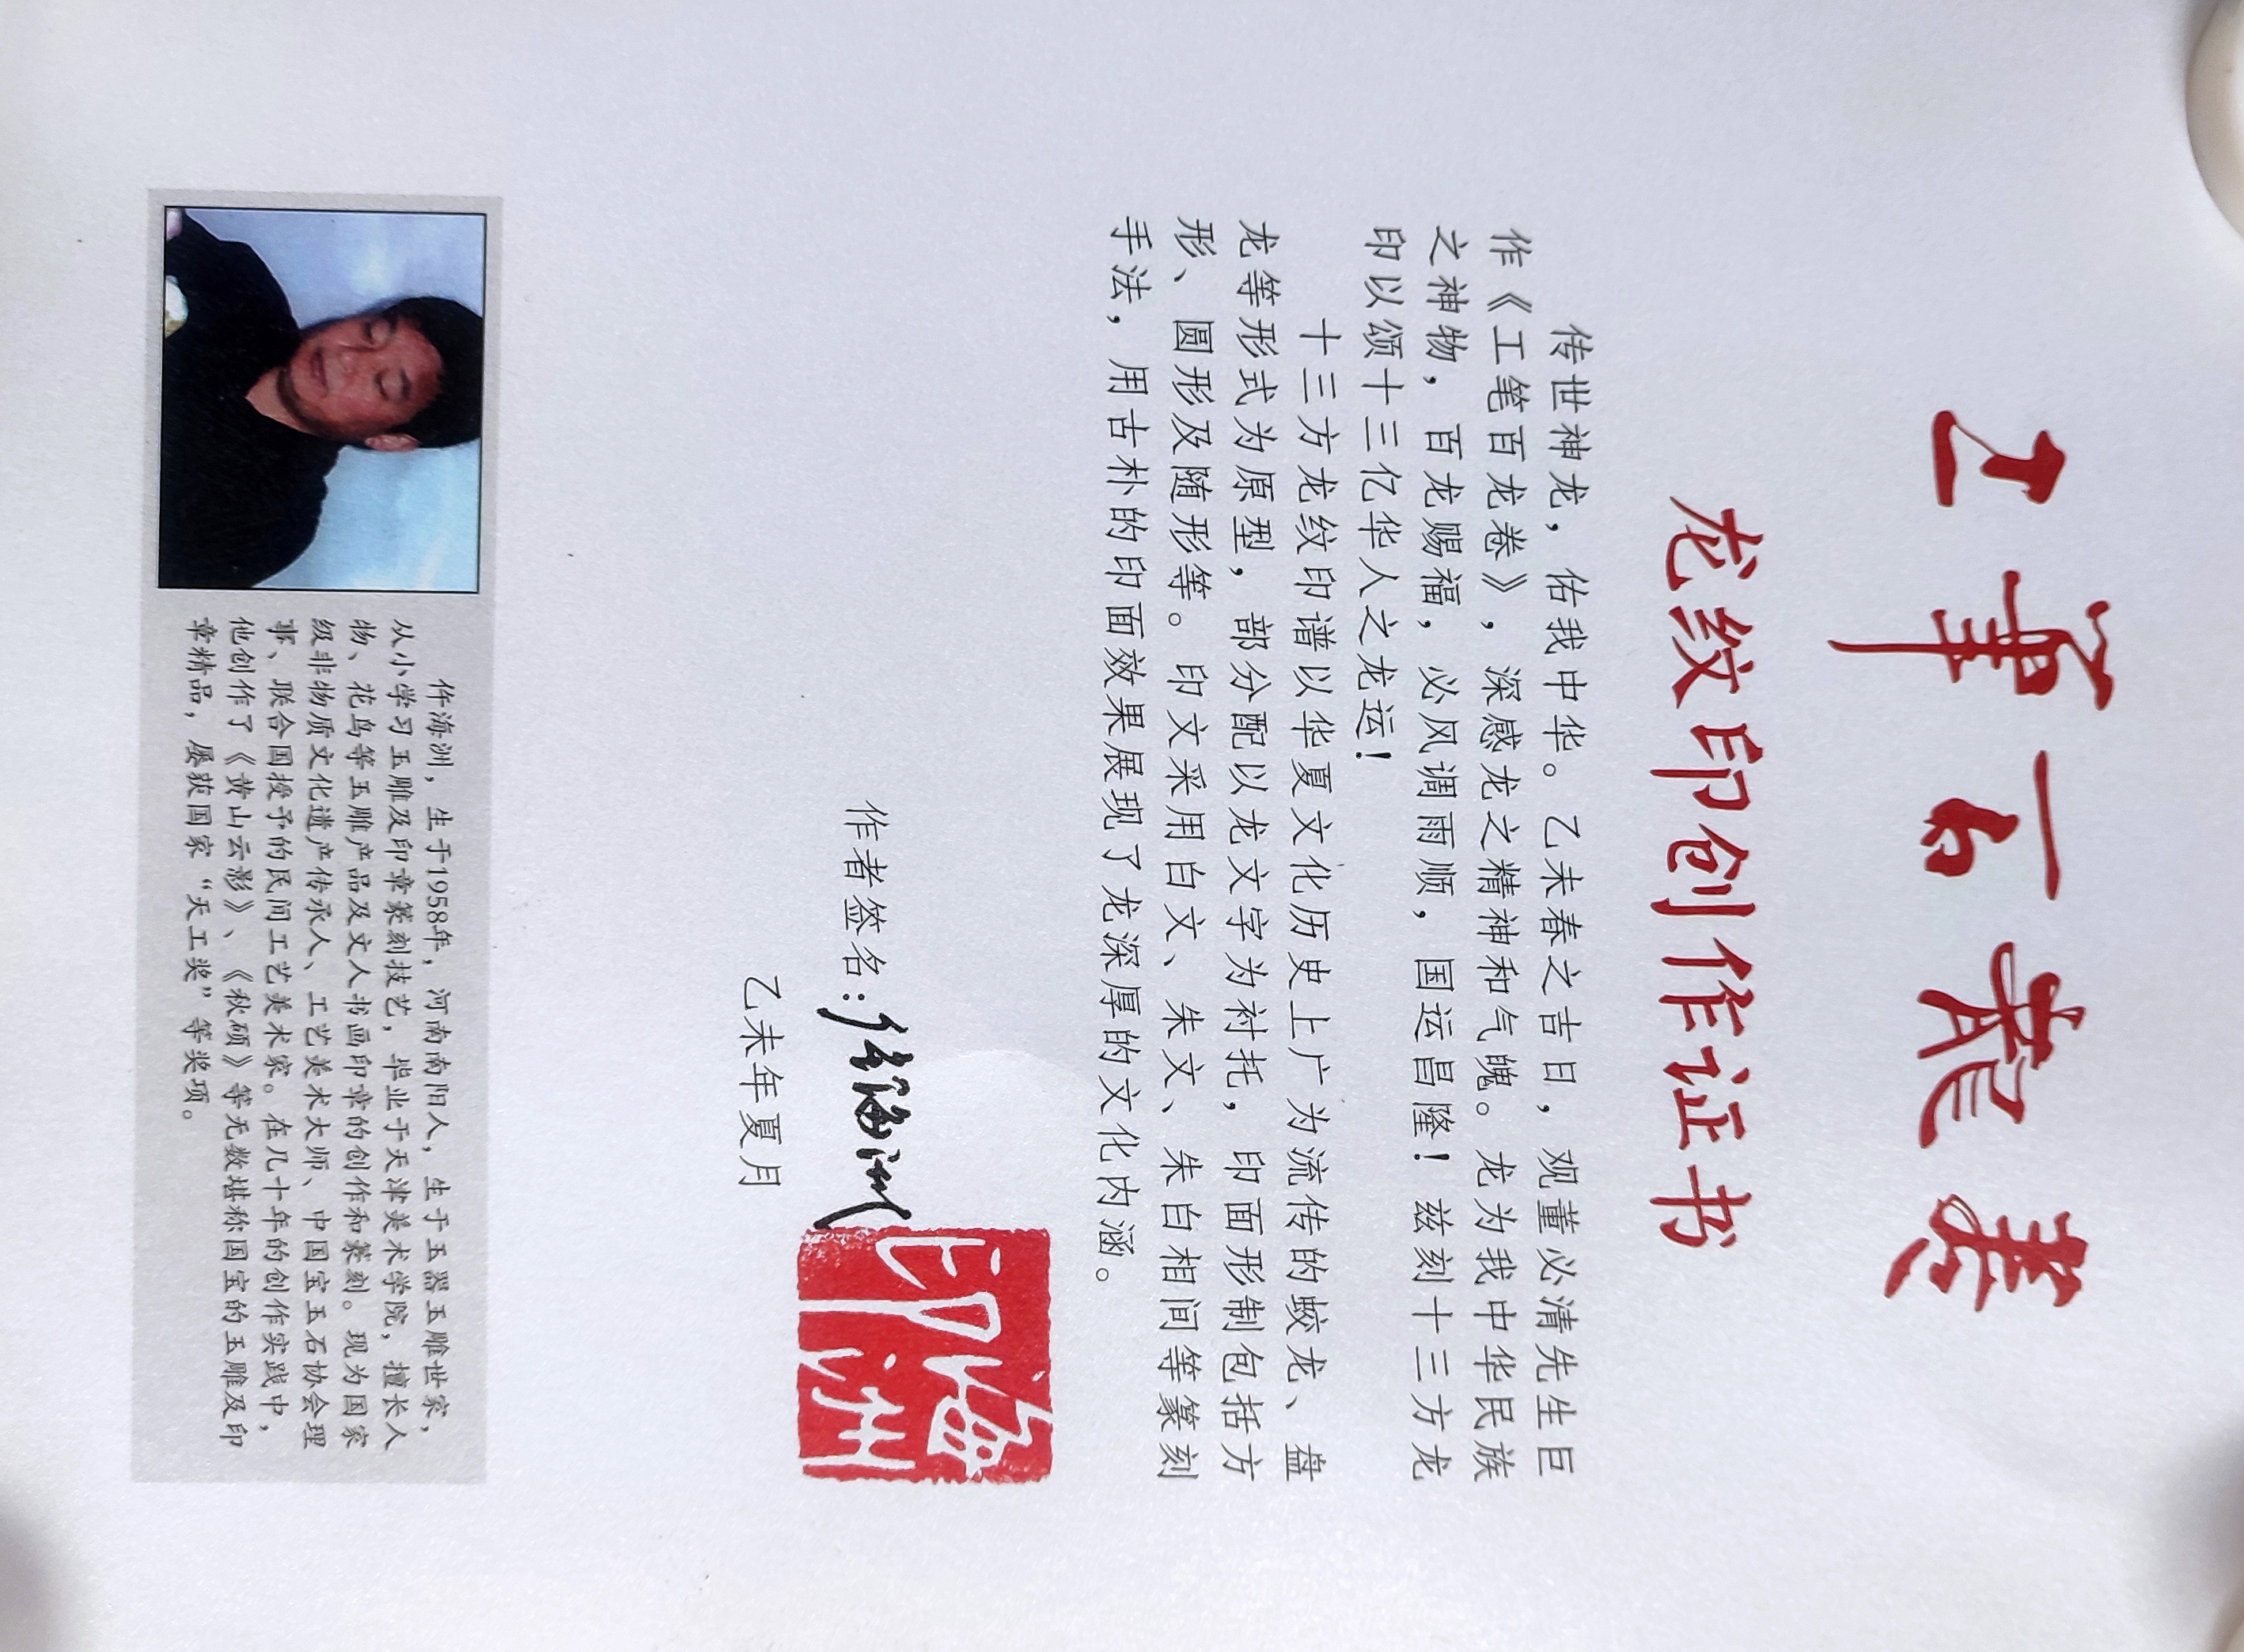 工筆百龍卷
龙纹印创作证书
传世神龙，佑我中华。乙未春之吉日，观董必清先生巨
作《工笔百龙卷》，深感龙之精神和气魄。龙为我中华民族
之神物，百龙赐福，必风调雨顺，国运昌隆！兹刻十三方龙
印以颂十三亿华人之龙运！
十三方龙纹印谱以华夏文化历史上广为流传的蛟龙、盘
龙等形式为原型，部分配以龙文字为衬托，印面形制包括方
形、圆形及随形等。印文采用白文、朱文、朱白相间等篆刻
手法，用古朴的印面效果展现了龙深厚的文化内涵。
作者签名：仵海洲
乙未年夏月
海洲印
仵海洲，生于1958年，河南南阳人，生于玉器玉雕世家，
从小学习玉雕及印章篆刻技艺，毕业于天津美术学院，擅长人
物、花鸟等玉雕产品及文人书画印章的创作和篆刻。现为国家
级非物质文化遗产传承人、工艺美术大师、中国宝玉石协会理
事、联合国授予的民间工艺美术家。在几十年的创作实践中，
他创作了《黄山云影》、《秋硕》等无数堪称国宝的玉雕及印
章精品，屡获国家“天工奖”等奖项。